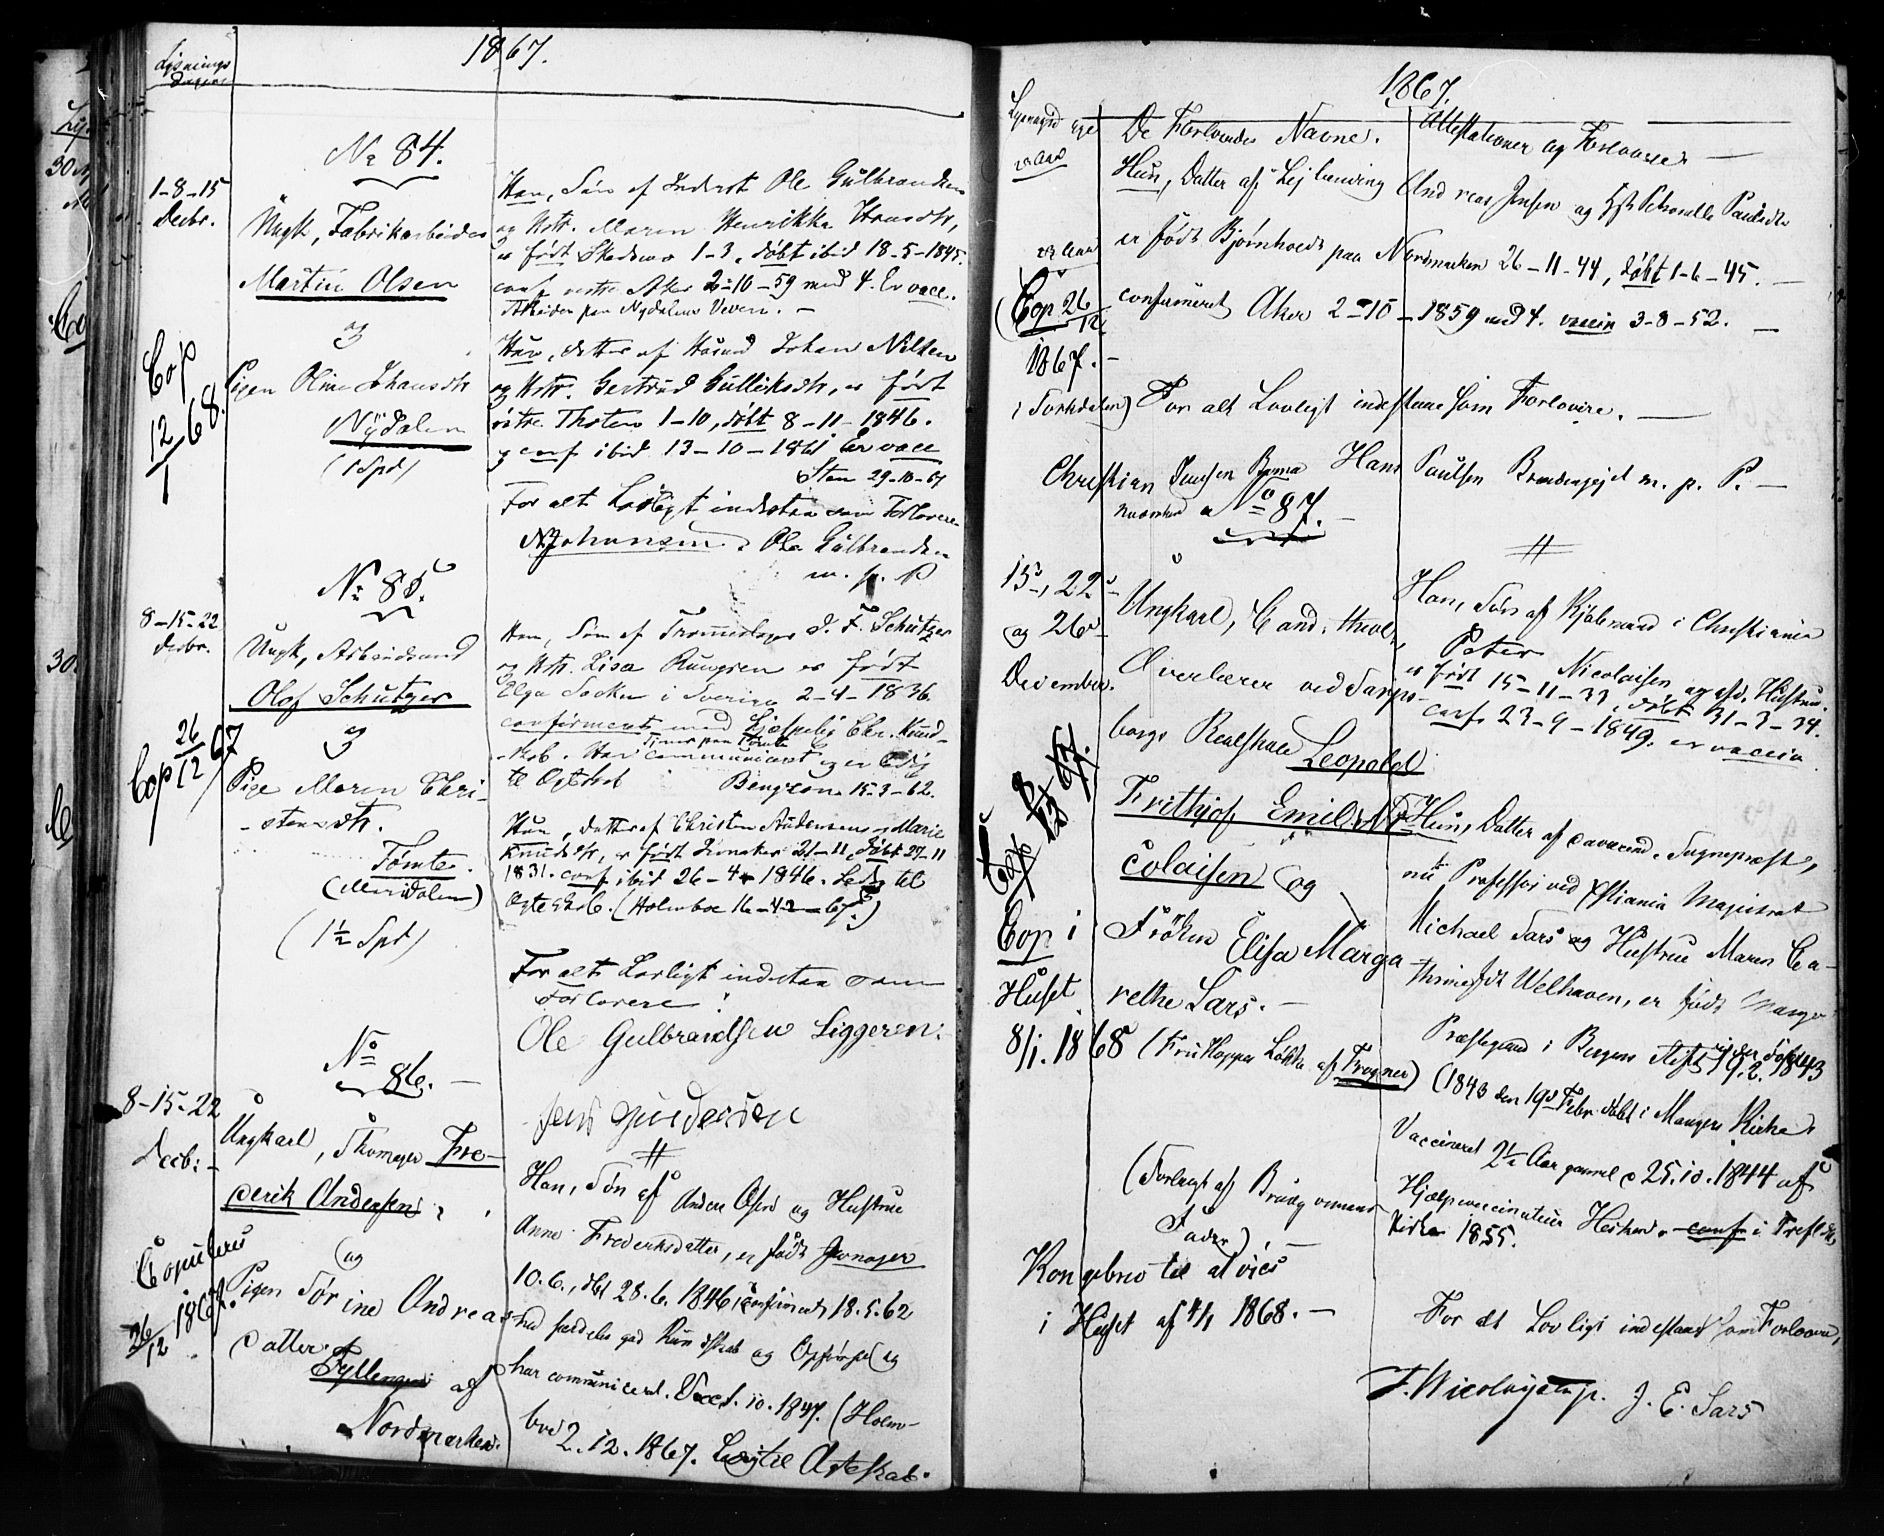 1867.
Lysnings
Dagene
No 84.
1-8-15
Decbr.
Ungk, Fabrikarbeider
Martin Olsen
og
Pigen Oline Johansdtr
Nydalen
(1 Spd)
Cop
12/1 68.
Han, Søn af Inderst Ole Gulbrandsen
og Hstr. Maren Henrikka Hansdtr,
er født Skedsmo 1-3, døbt ibid 18-5-1845.
conf vestre Aker 2-10-59 med 4. Er vacc.
Arbeider paa Nydalens Væveri. -
Hun, datter af Husmd Johan Nilsen
og Hstr. Gertrud Gulliksdtr, er født
østre Thoten 1-10, døbt 8-11-1846.
og conf ibid 13-10-1861 Er vacc
Sten 29-10-67
For alt Lovligt indestaa som Forlovere
Johansen. Ole Gulbrandsen
m. p. P
No 85.
8-15-22
Decbr.
Ungk, Arbeidsmd
Olof Schutzer
og
Pige Maren Chri-
stensdtr.
Tømte.
(Maridalen)
(1½ Spd)
Cop 26/12 67
Han, Søn af Trommeslager J. F. Schutzer
og Hstr. Lisa Rungren er født
Elga Socken i Sverige 2-4-1836.
confirmeret med hjæpelig Chr. Kund-
skab. Har communiceret og er ledig
Tjener paa Tømte
til Egteskab Bengtson 15-3-62.
Hun, datter af Christen Andersen og Marie
Knudsdtr, er født Jevnaker 21-11, døbt 27-11
1831. conf ibid 26-4-1846. Ledig til
Egteskab. (Holmboe 16-12-67.)
For alt Lovligt indestaa som
Forlovere:
Ole Gulbrandsen Liggeren.
Jens Gundersen
No 86. -
8-15-22
Decbr: -
Ungkarl, Skomager Fre-
derik Andersen
og
Pigen Sørine Andreas
datter.
Fyllingen af
Nordmarken.
Copuleret
26/12 1867.
Han, Søn af Anders Olsen og Hustrue
Anne Frederiksdatter, er født Jevnager
10.6., døbt 28.6. 1846, confirmeret 18.5.62
med særdeles god Kundskab og Opførsel og
har communiceret. Vacc 1.10.1847. (Holm-
boe 2.12.1867. Ledig til Ægteskab.
1867.
De Forlovedes Navne. Attestationer og Forlovere. -
Hun, Datter af Lejlending Andreas Jensen og Hst Pernelle Paulsdtr
er født Bjørnholt paa Nordmarken 26-11-44, døbt 1-6-45. -
confirmeret Aker 2-10-1859 med 4. vaccin 3-8-52. -
(Cop 26/12
1867. -
i Sørkedalen)
For alt Lovligt indestaae som Forlovere. -
Christian Hans Paulsen m. p. P. -
No 87. -
15, 22
og 26
December.
Ungkarl, Cand: theol,
Overlærer ved Sarps-
borgs Realskole Leopold
Frithjof Emil Ni-
colaisen og
Frøken Elisa Marga
rethe Sars. -
(Fru Kloppes Løkke af Frogner)
Cop i
Huset
8/1. 1868
Han, Søn af Kjøbmand i Christiania
Peter Nicolaisen og afd. Hustru.
er født 15-11-33, døbt 31-3-34.
conf. 23-9-1849. er vaccin.
Hun, Datter af daværend. Sognepræst,
nu Professor ved Xstiania Magistrat
Michael Sars og Hustrue Maren Ca-
thrine født Welhaven, er født Manger
Præstegaard i Bergens Stift 19.2.1843
(1843 den 19d Febr. døbt i Mangers Kirke
Vaccineret 2½ Aar gammel d 25.10.1844 af
Hjælpevaccinateur conf i Trefold.
Kirke 1855.
(Forlangt af Brudgommens
Fader) -
Kongebrev til at vies
i Huset af 4/1 1868. -
For alt Lovligt indestaae som Forlovere,
F. Nicolaysen p. J. E. Sars